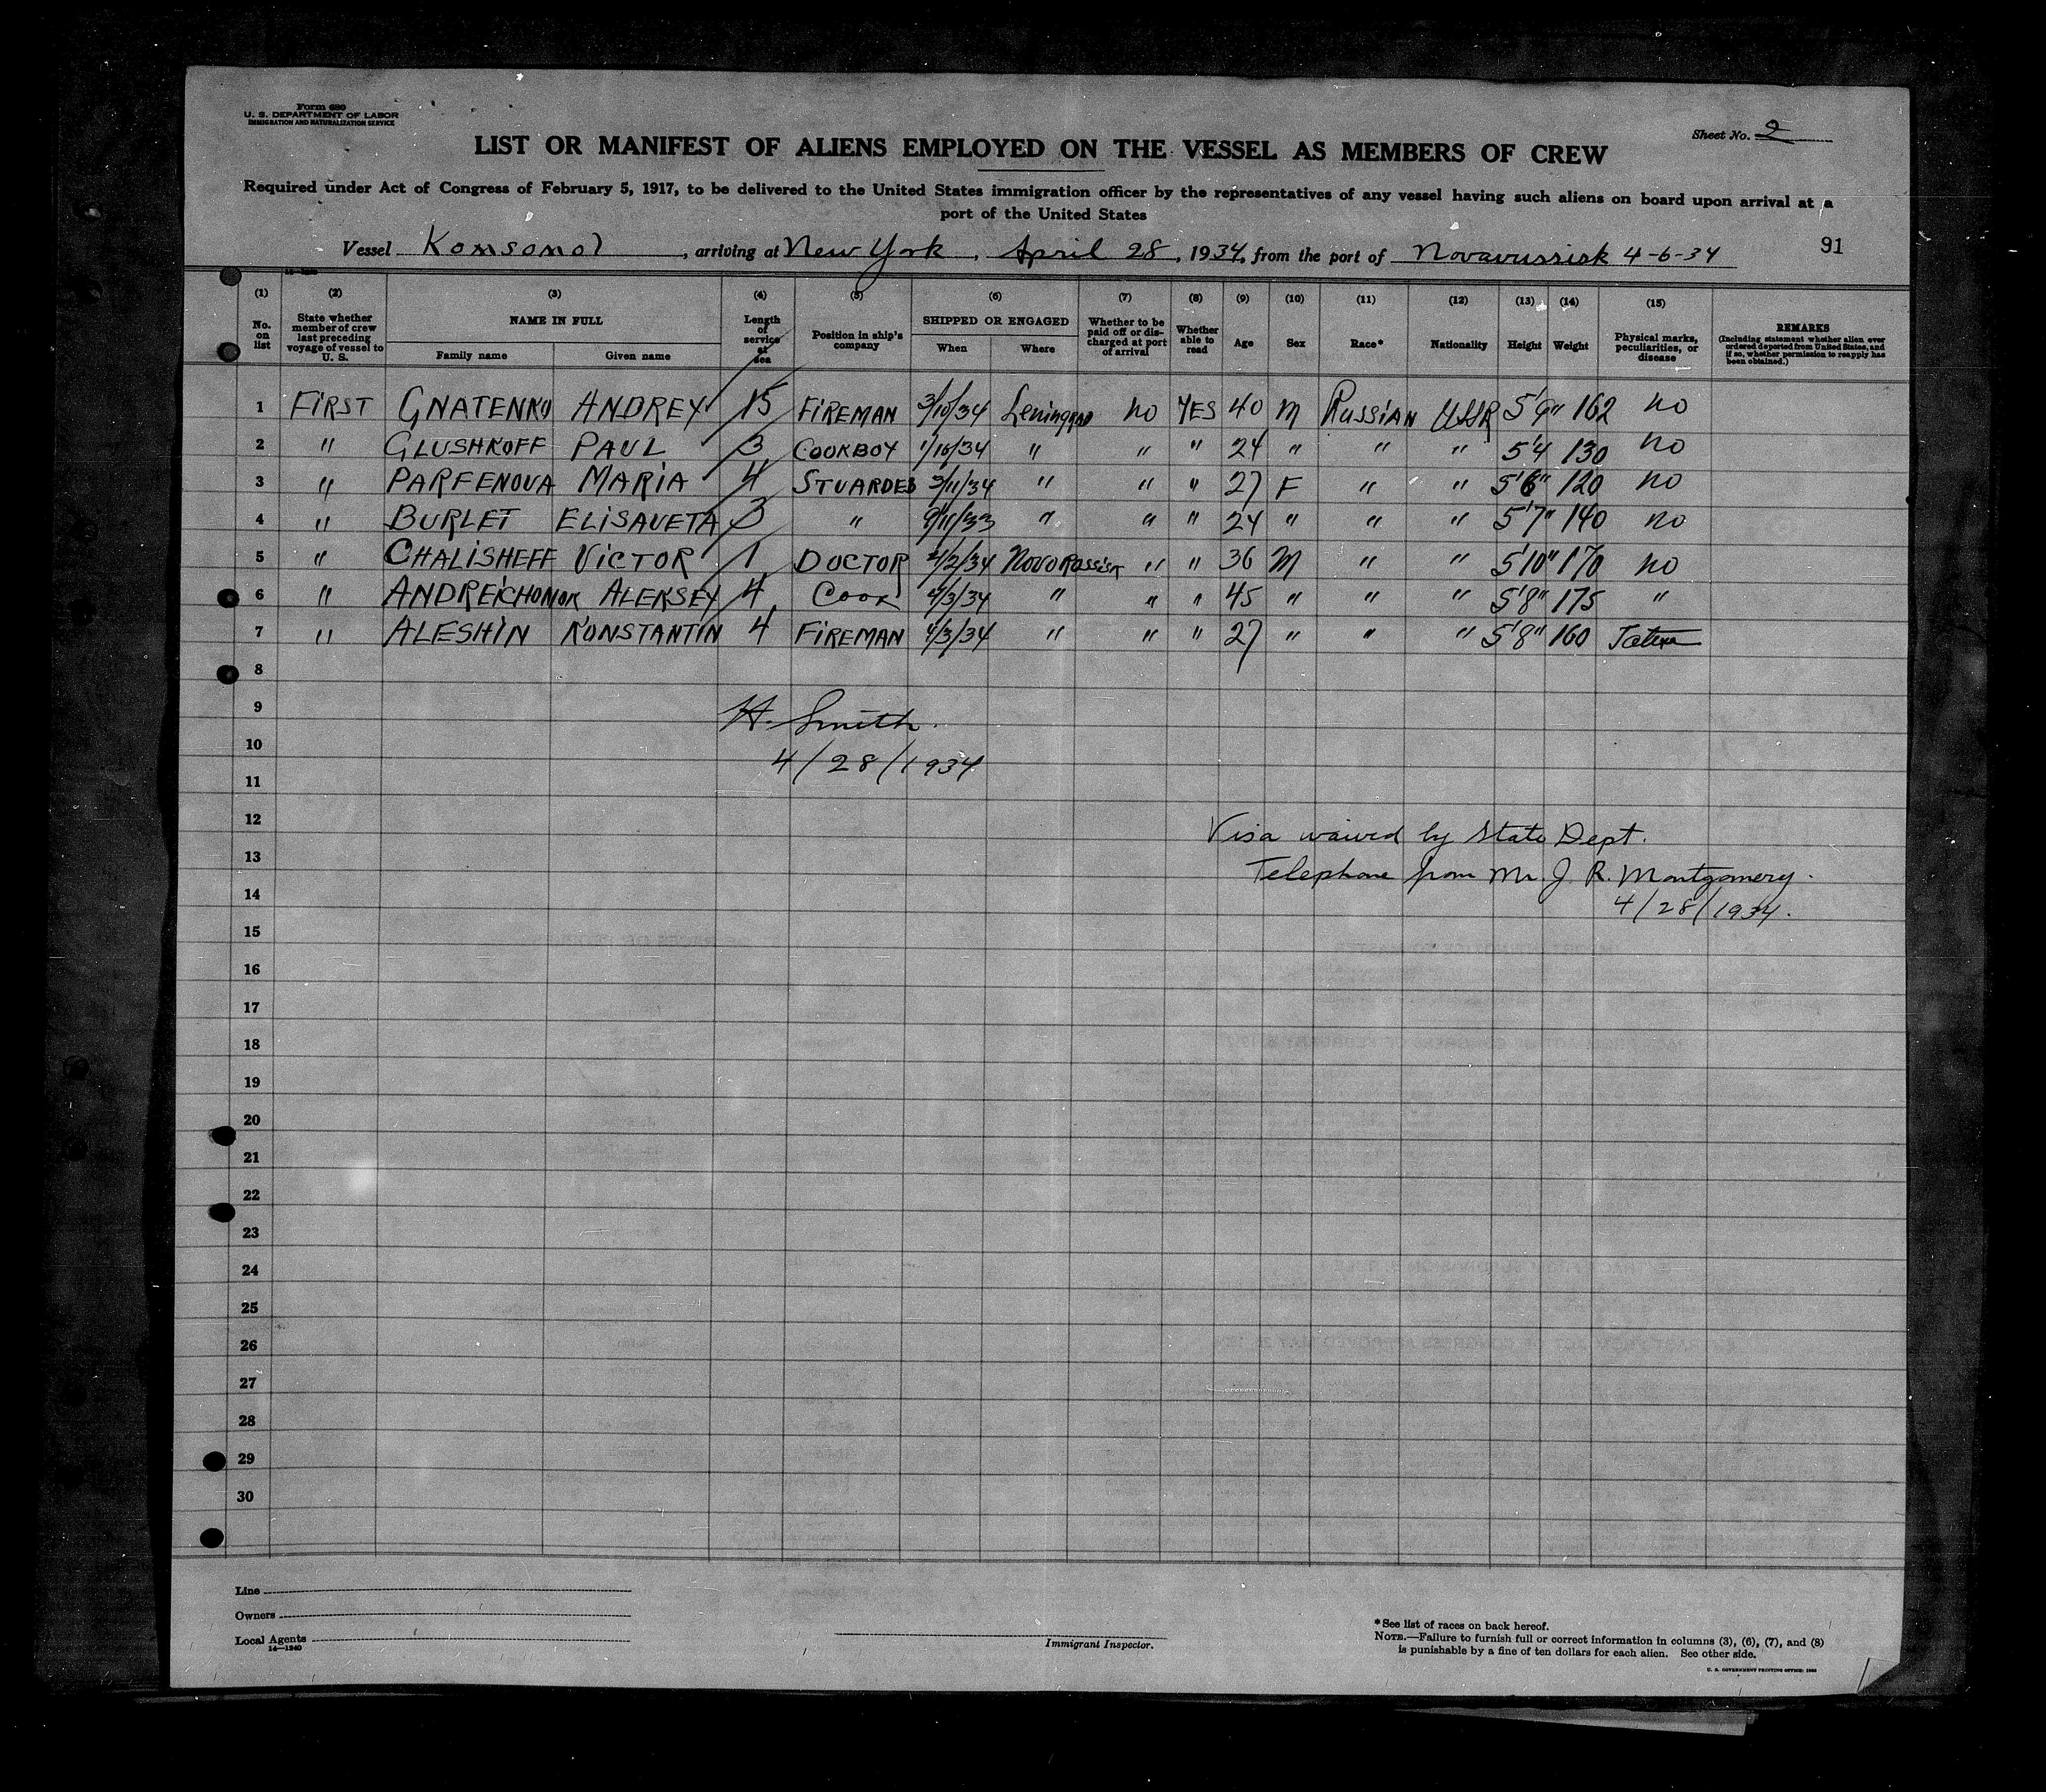 Form 680
U. S. DEPARTMENT OF LABOR
IMMIGRATION AND NATURALIZATION SERVICE
Sheet No. 2
LIST OR MANIFEST OF ALIENS EMPLOYED ON THE VESSEL AS MEMBERS OF CREW
Required under Act of Congress of February 5, 1917, to be delivered to the United States immigration officer by the representatives of any vessel having such aliens on board upon arrival at a
port of the United States
Vessel Komsomol, arriving at New York, April 28, 1934, from the port of Novavussisk 4-6-34
91
(1) (2) (3) (4) (5) (6) (7) (8) (9) (10) (11) (12) (13) (14) (15)
No. on list State whether member of crew last preceding voyage of vessel to U. S. NAME IN FULL Family name Given name Length of service at sea Position in ship's company SHIPPED OR ENGAGED When Where Whether to be paid off or discharged at port of arrival Whether able to read Age Sex Race* Nationality Height Weight Physical marks, peculiarities, or disease REMARKS (Including statement whether alien ever ordered deported from United States, and if so, whether permission to reapply has been obtained.)
1 FIRST GNATENKO ANDREY 15 FIREMAN 3/10/34 Leningrad no YES 40 M Russian USSR 5'9" 162 no
2 " GLUSHKOFF PAUL 3 COOKBOY 1/10/34 " " " 24 " " " 5'4 130 no
3 " PARFENOVA MARIA 4 STUARDES 3/11/34 " " " 27 F " " 5'6" 120 no
4 " BURLET ELISAVETA 3 " 9/11/33 " " " 24 " " " 5'7" 140 no
5 " CHALISHEFF VICTOR 1 DOCTOR 4/2/34 NOVORossisk " " 36 M " " 5'10" 170 no
6 " ALEKSEY 4 Cook 4/3/34 " " " 45 " " " 5'8" 175 "
7 " ALESHIN KONSTANTIN 4 FIREMAN 4/3/34 " " " 27 " " " 5'8" 160
8
9
H. Smith.
10
4/28/1934
11
12
Visa waived by State Dept.
13
Telephone from Mr. J. R. Montgomery.
14
4/28/1934.
15
16
17
18
19
20
21
22
23
24
25
26
27
28
29
30
Line
Owners
Local Agents
14—1240
Immigrant Inspector.
*See list of races on back hereof.
NOTE.—Failure to furnish full or correct information in columns (3), (6), (7), and (8)
is punishable by a fine of ten dollars for each alien. See other side.